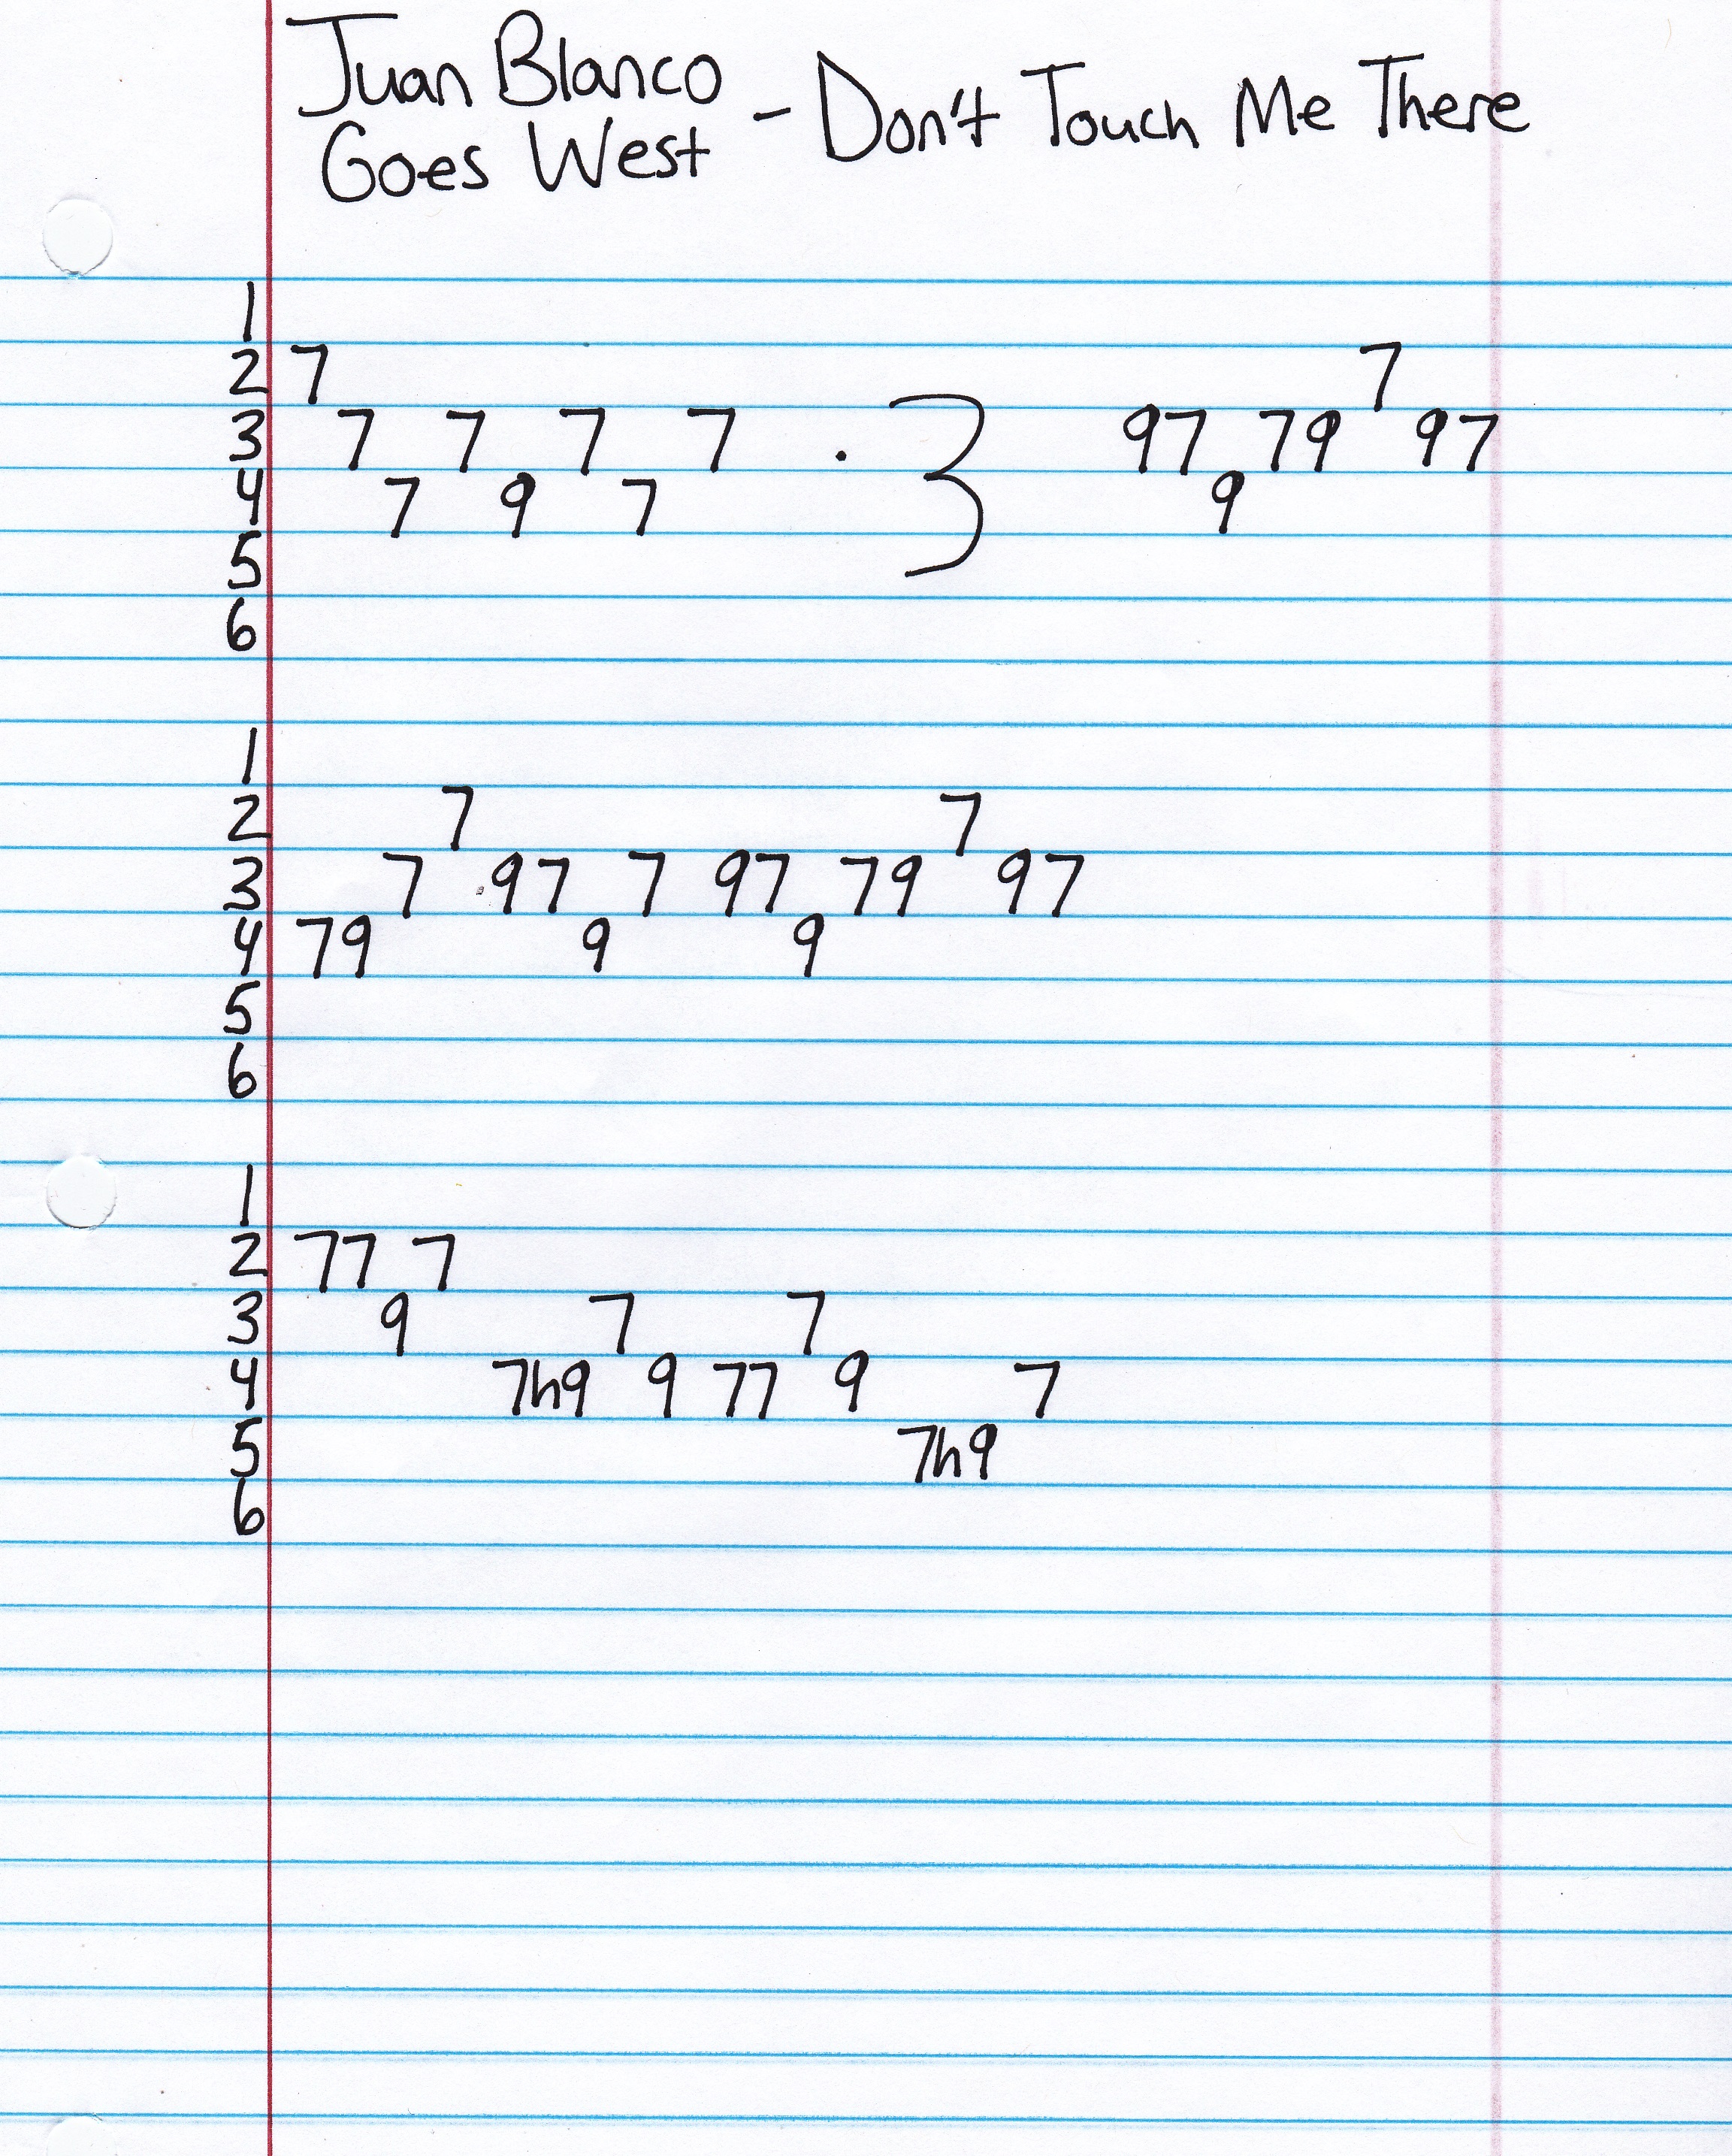 Juan Blanco
Goes West - Don't Touch Me There
1
2 7 7
3 7 7 7 7 . } 97 79 97
4 7 9 7 9
5
6
1
2 7 7
3 7 97 7 97 79 97
4 79 9 9
5
6
1
2 77 7
3 9 7 7
4 7h9 9 77 9 7
5 7h9
6